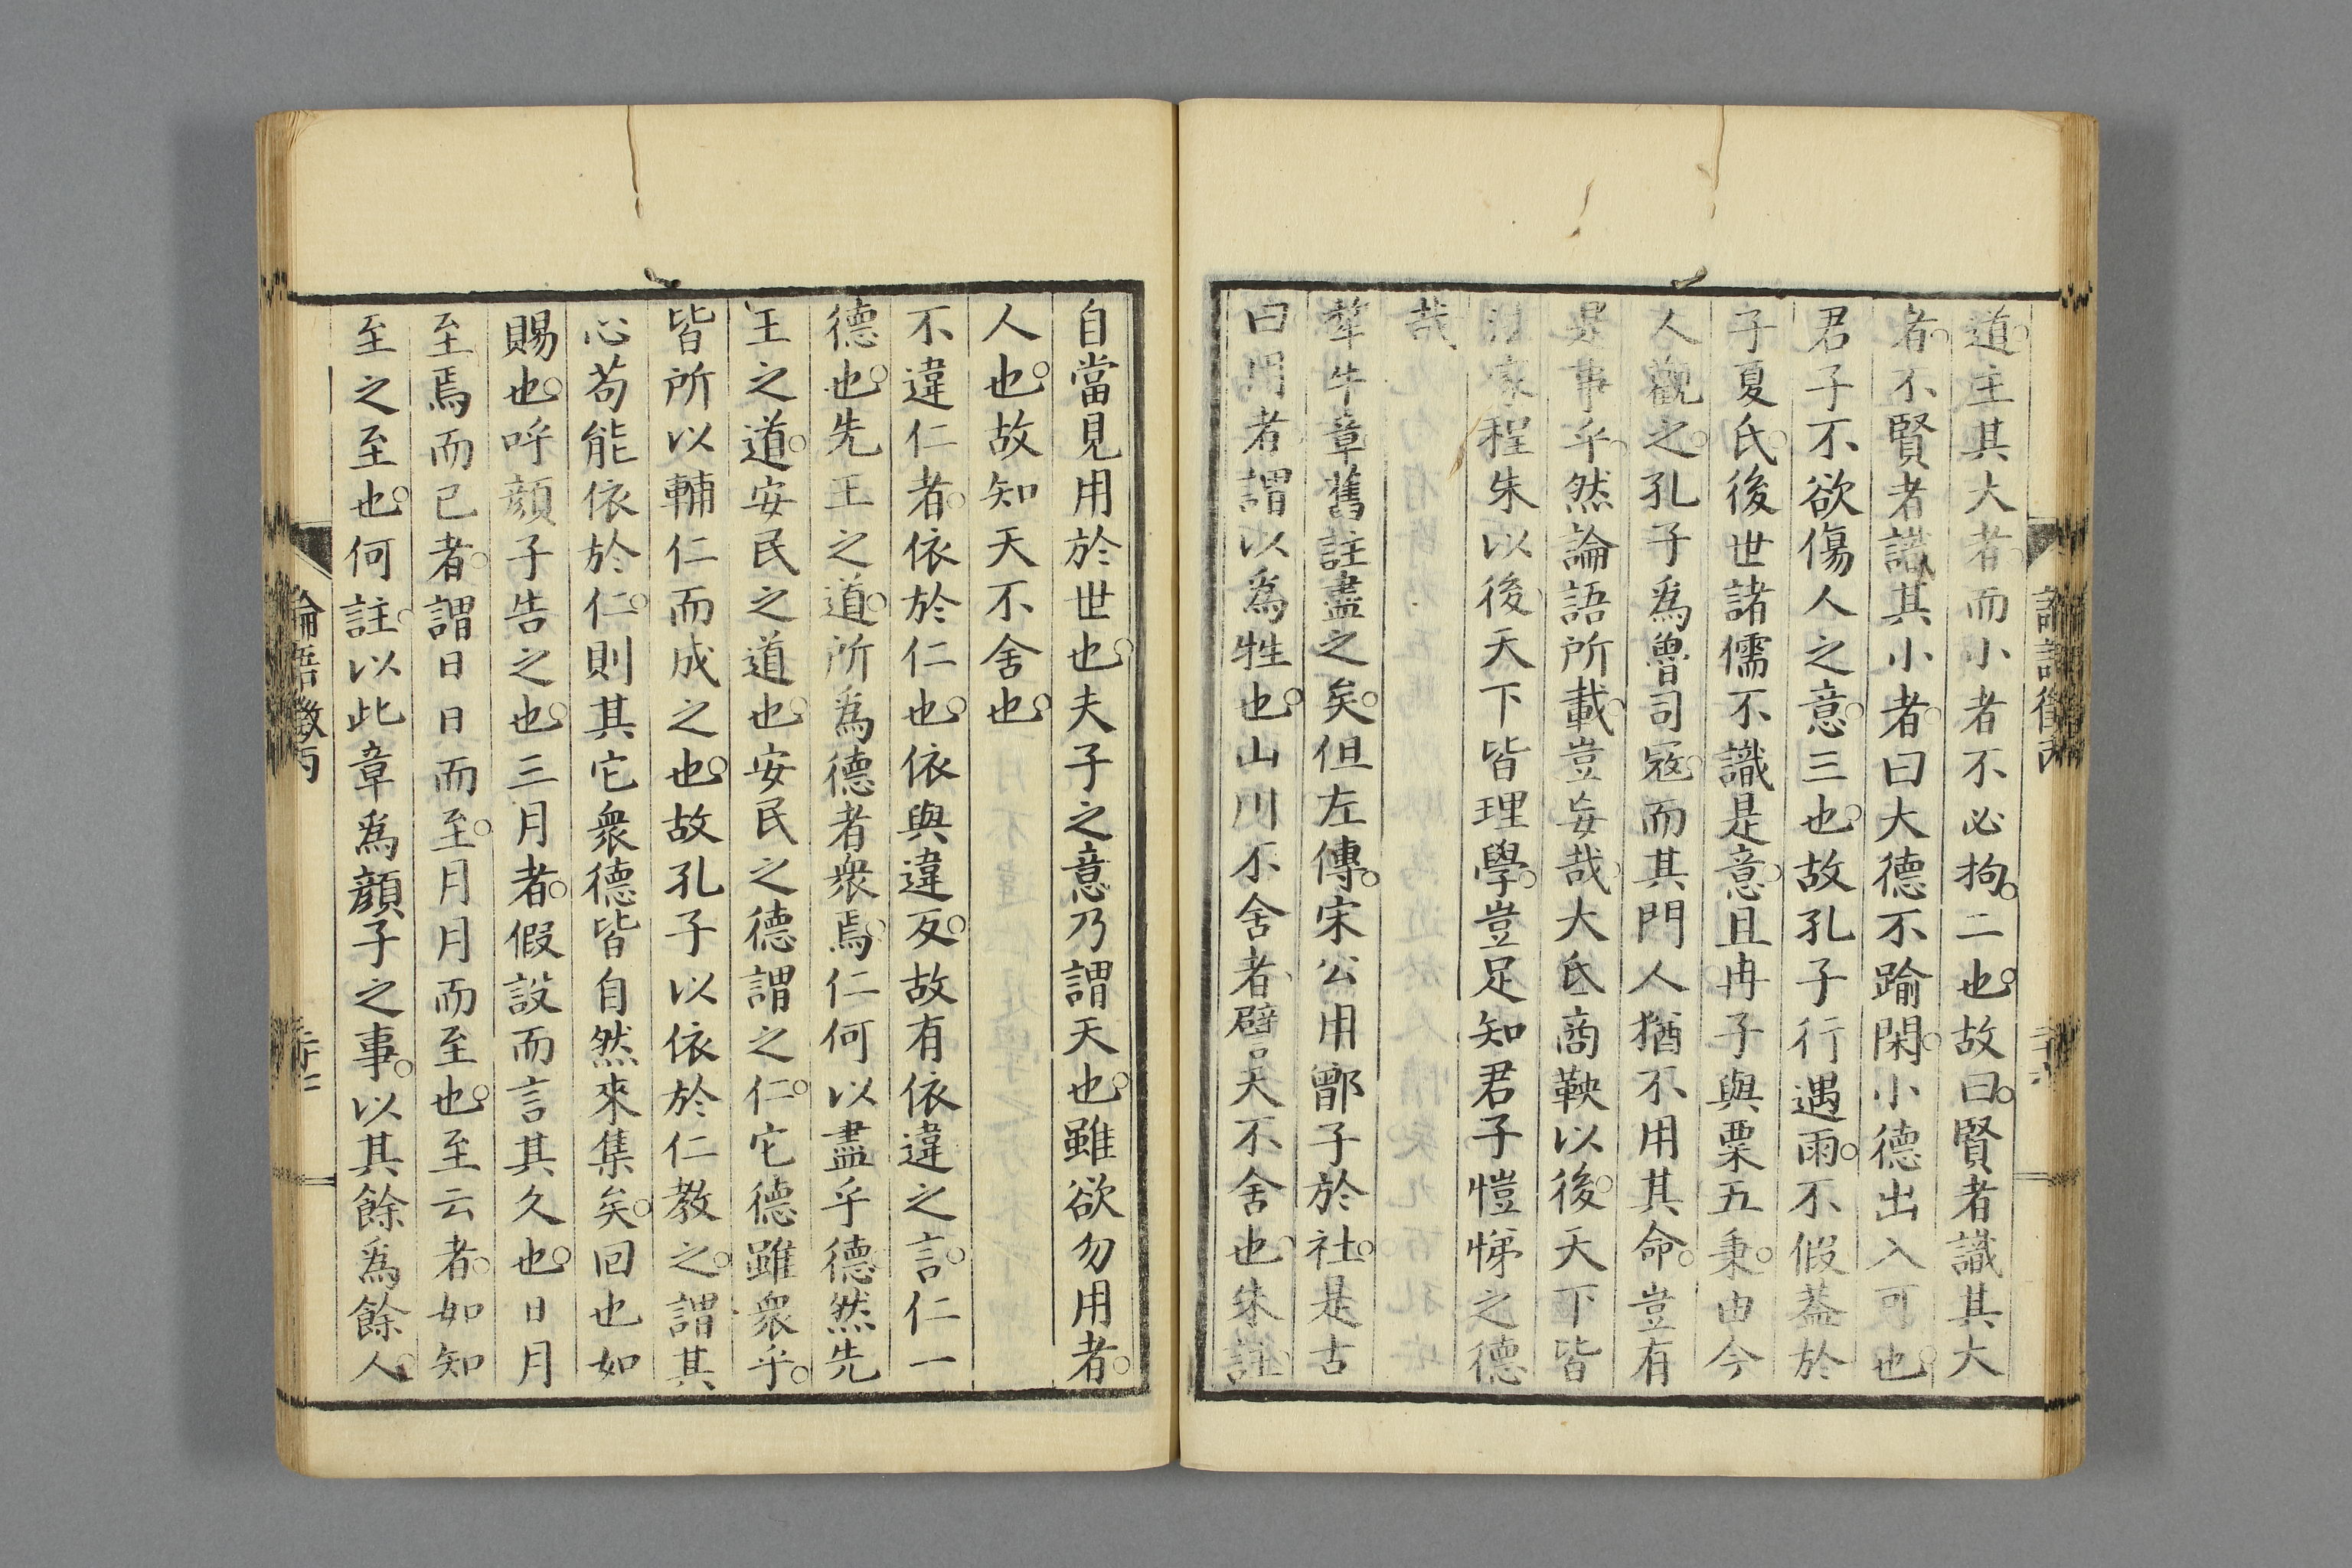 道主其大者而小者不必拘二也故曰賢者識其大
者不賢者識其小者曰大德不踰閑小德出入可也
君子不欲傷人之意三也故孔子行遇雨不假蓋於
子夏氏後世諸儒不識是意且冉子與粟五秉由今
人觀之孔子爲魯司寇而其門人猶不用其命豈有
是事乎然論語所載豈妄哉大氐商鞅以後天下皆
法家程朱以後天下皆理學豈足知君子愷悌之德
哉
犂牛章舊註盡之矣但左傳宋公用鄫子於社是古
曰用者謂以爲牲也山川不舍者譬天不舍也朱註
自當見用於世也夫子之意乃謂天也雖欲勿用者
人也故知天不舍也
不違仁者依於仁也依與違反故有依違之言仁一
德也先王之道所爲德者衆焉仁何以盡乎德然先
王之道安民之道也安民之德謂之仁它德雖衆乎
皆所以輔仁而成之也故孔子以依於仁教之謂其
心苟能依於仁則其它衆德皆自然來集矣回也如
賜也呼顔子告之也三月者假設而言其久也日月
至焉而已者謂日日而至月月而至也至云者如知
至之至也何註以此章爲顔子之事以其餘爲餘人
論語徵丙